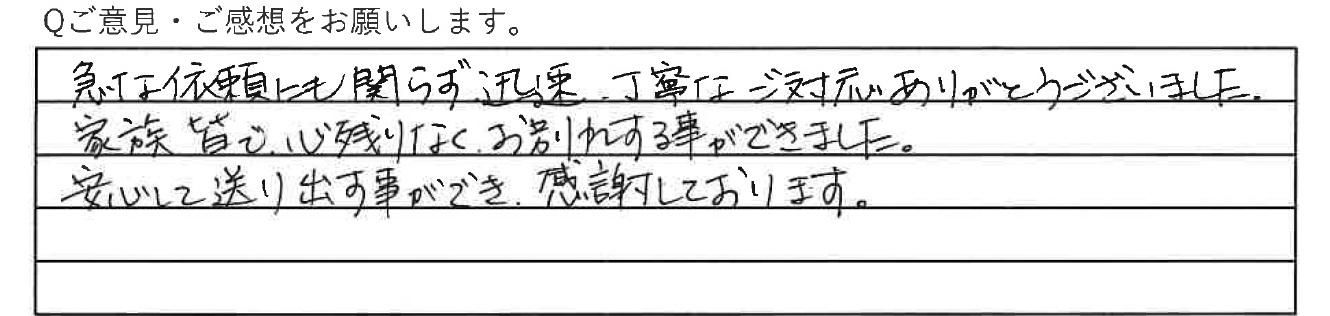 Qご意見・ご感想をお願いします。
急な依頼にも関らず、迅速、丁寧なご対応ありがとうございました。
家族皆で、心残りなく、お別れする事ができました。
安心して送り出す事ができ、感謝しております。